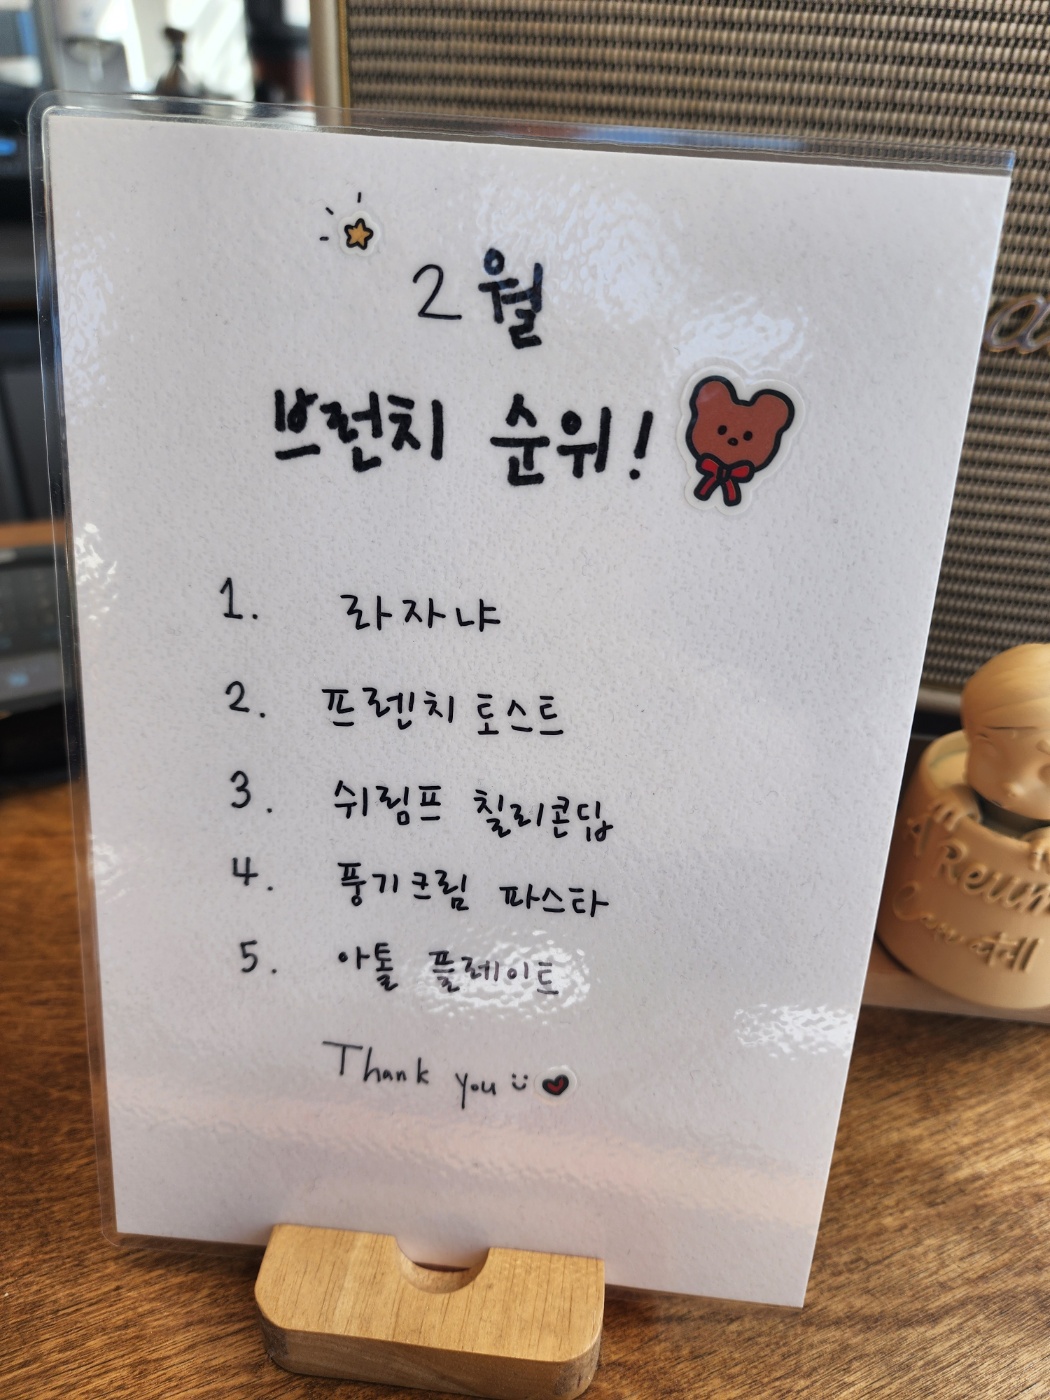 2월
브런치 순위!
1. 라자냐
2. 프렌치 토스트
3. 쉬림프 칠리콘딥
4. 풍기크림 파스타
5. 아톨 플레이트
Thank you